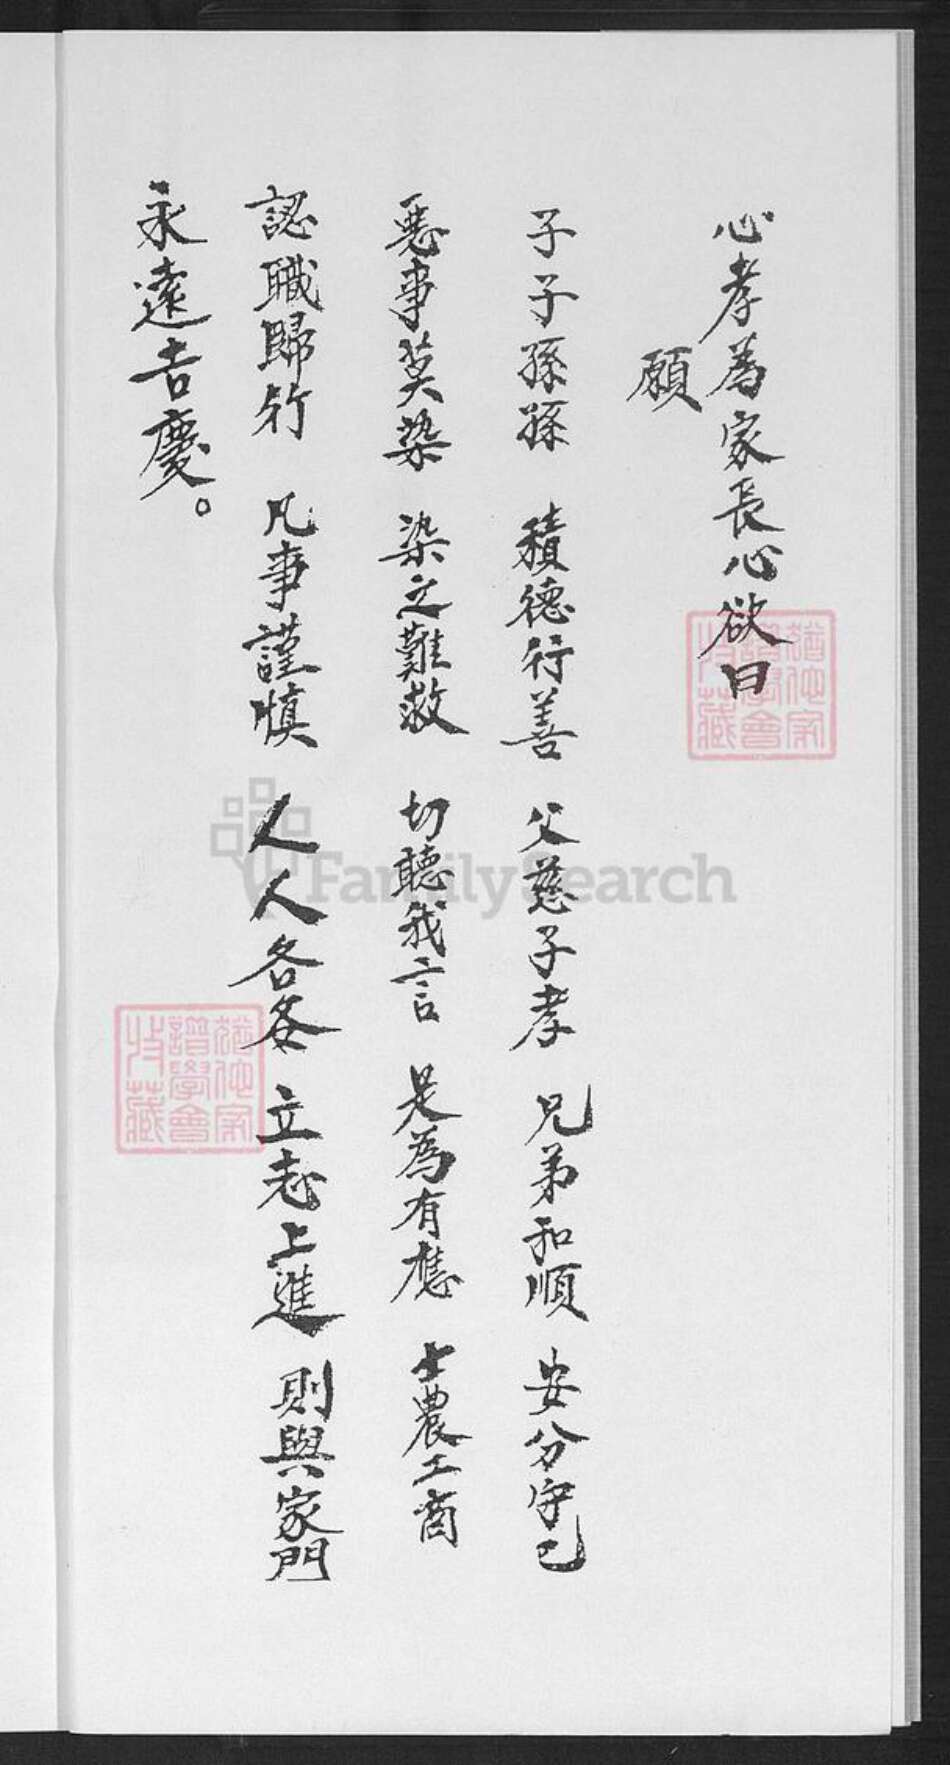 心孝為家長心欲曰
願
子子孫孫 積德行善 父慈子孝 兄弟和順 安分守己
惡事莫染 染之難救 切聽我言 是為有應 士農工商
認職歸行 凡事謹慎 人人各各 立志上進 則興家門
永遠吉慶。
FamilySearch
譜學會
收藏
譜學會
收藏